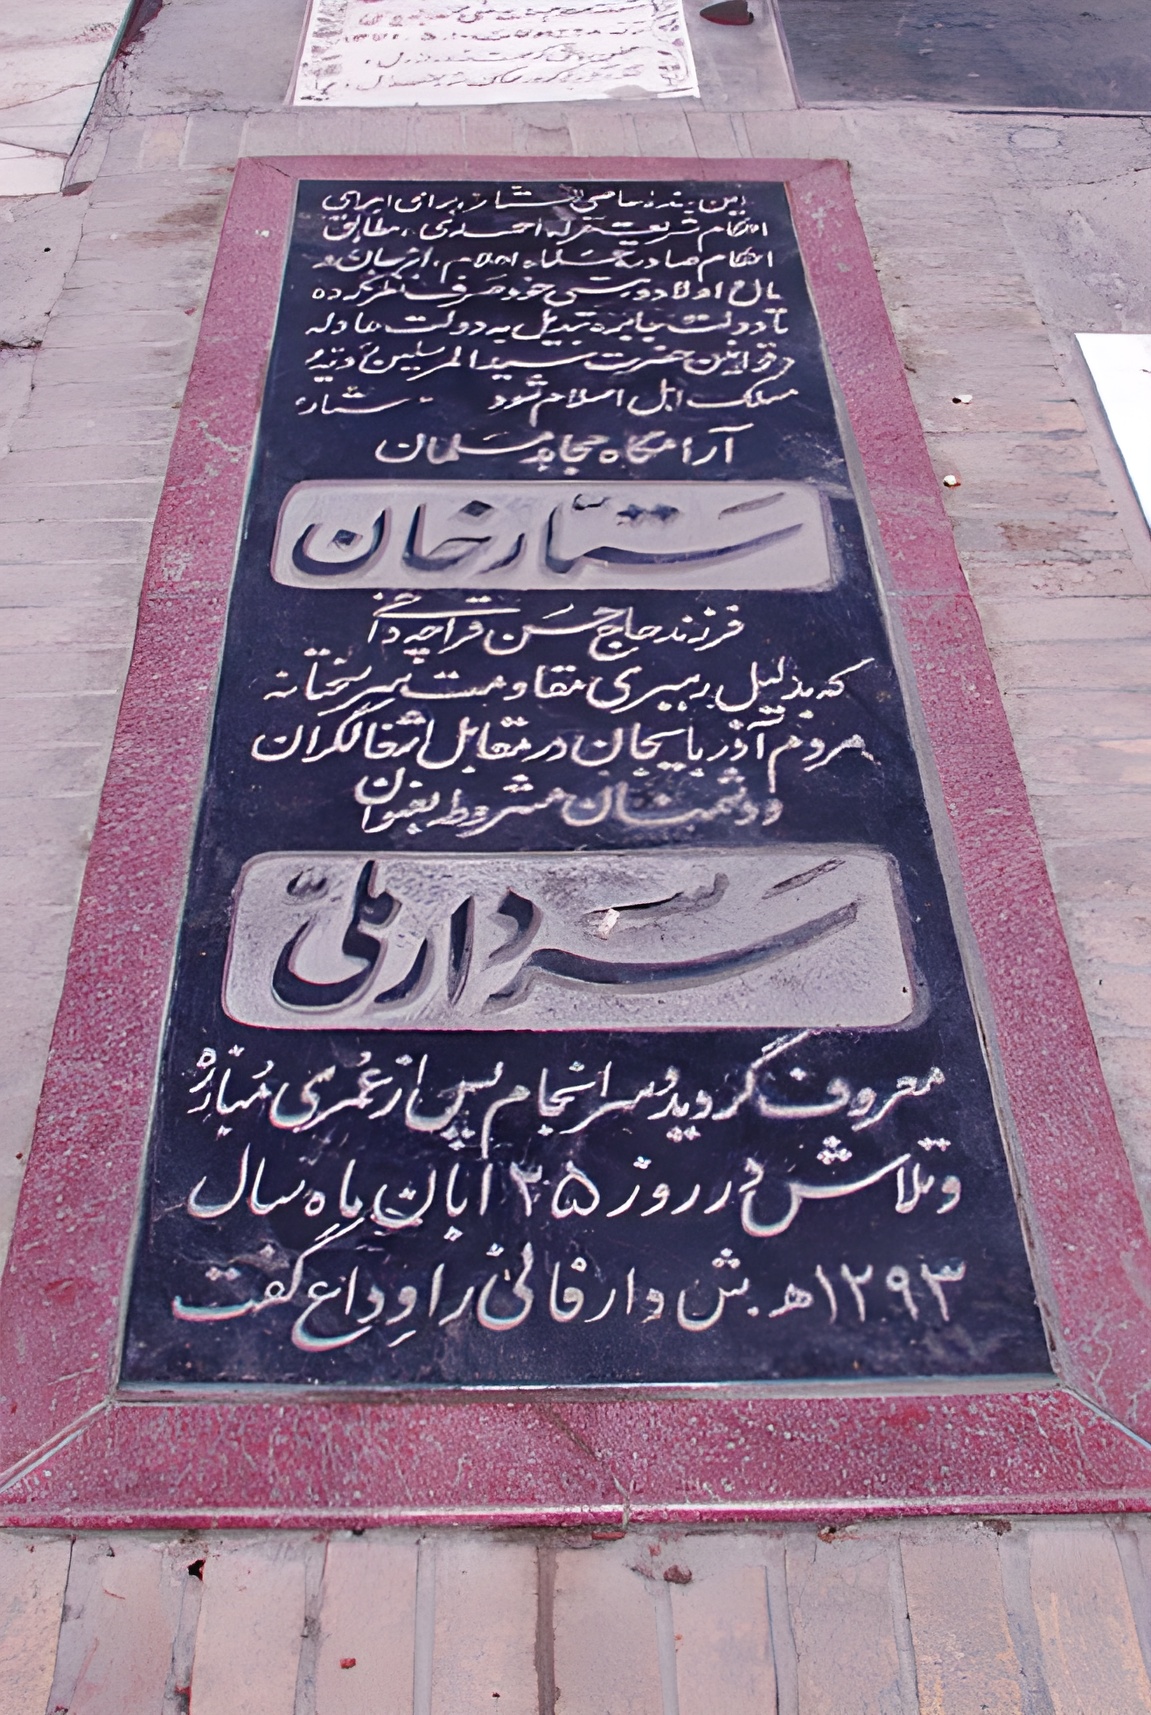 این بنده عاصی ستار، برای اجرای
احکام شریعت غراء احمدی، مطابق
احکام صادره علماء اعلام، از جان و
مال و اولاد و هستی خود صرف نظر کرده
تا دولت جابره تبدیل به دولت عادله
و قوانین حضرت سیدالمرسلین و رویه
مسلک اهل اسلام شود - ستار
آرامگاه مجاهد مسلمان
ستّارخان
فرزند حاج حسن قراچه داغی
که بدلیل رهبری مقاومت سرسختانه
مردم آذربایجان در مقابل اشغالگران
و دشمنان مشروطه بعنوان
سردار ملّی
معروف گردید سرانجام پس از عُمری مُبارزه
و تلاش در روز ۲۵ آبان ماه سال
۱۲۹۳ ه.ش دار فانی را وِداع گفت